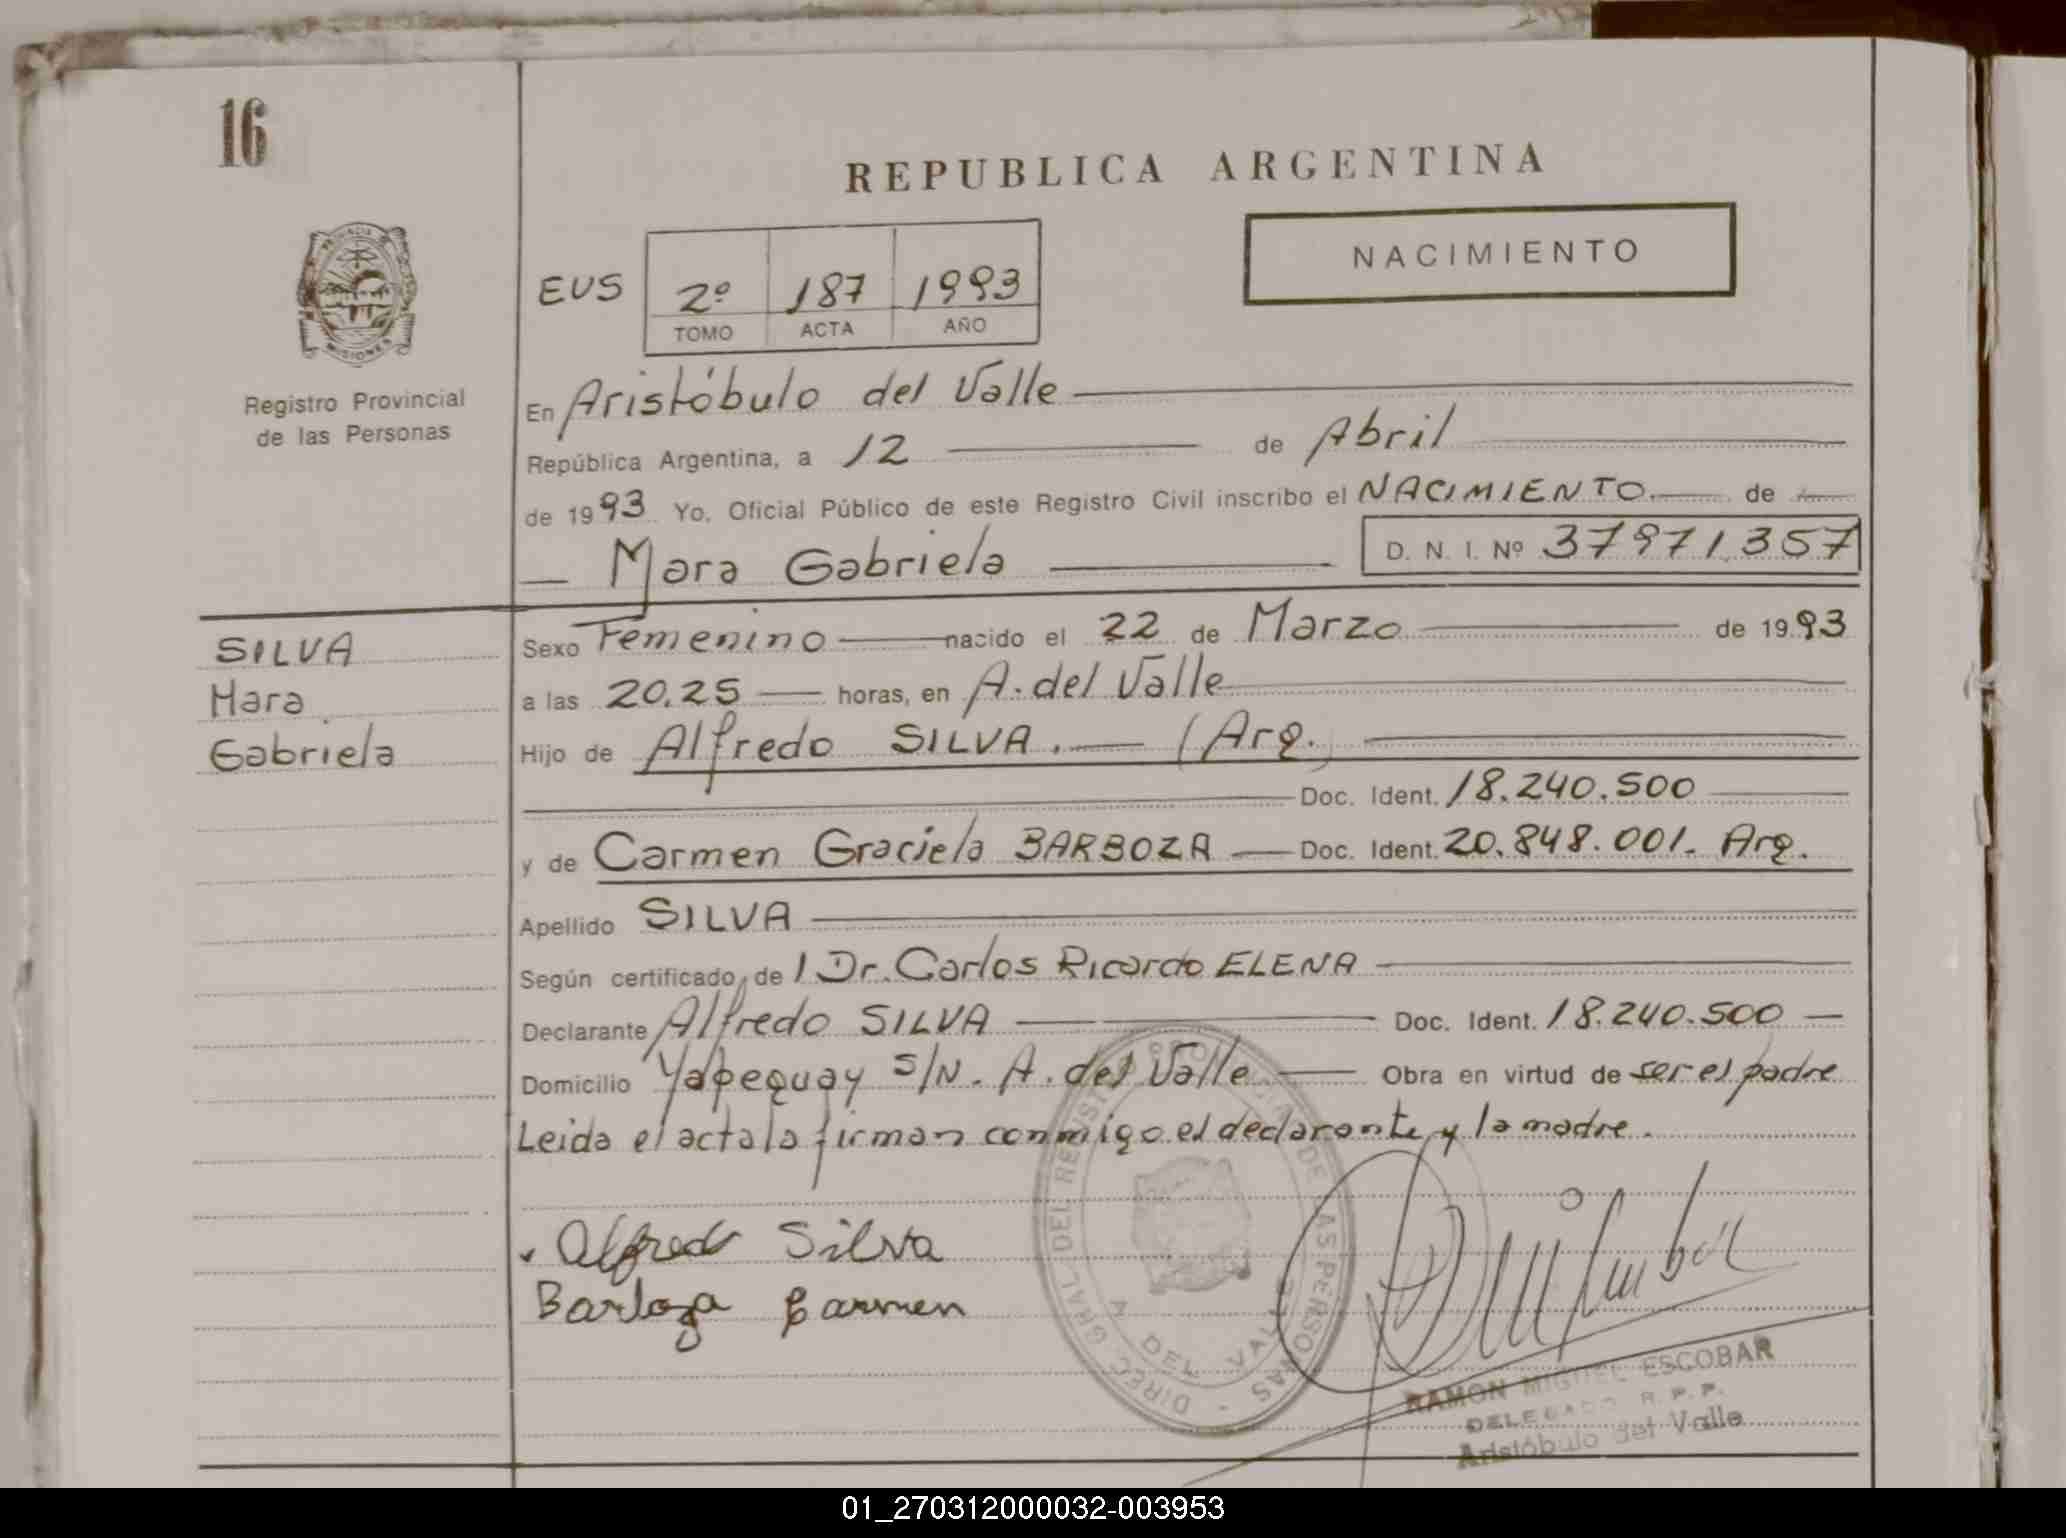 16
REPUBLICA ARGENTINA
NACIMIENTO
EUS 2º 187 1993
TOMO ACTA AÑO
PROVINCIA DE
MISIONES
Registro Provincial
de las Personas
En Aristóbulo del Valle
República Argentina, a 12 de Abril
de 1993 Yo, Oficial Público de este Registro Civil inscribo el NACIMIENTO. de
Mara Gabriela D. N. I. Nº 37971.357
SILVA
Mara
Gabriela
Sexo Femenino nacido el 22 de Marzo de 1993
a las 20.25 horas, en A. del Valle
Hijo de Alfredo SILVA. (Arg.)
Doc. Ident. 18.240.500
y de Carmen Graciela BARBOZA Doc. Ident. 20.848.001. Arg.
Apellido SILVA
Según certificado de l Dr. Carlos Ricardo ELENA
Declarante Alfredo SILVA Doc. Ident. 18.240.500
Domicilio Yapeguay S/N. A. del Valle Obra en virtud de ser el padre
Leida el acta la firman conmigo el declarante y la madre.
Alfredo Silva
Barboza Carmen
DIREC. GRAL. DEL REGISTRO PROVINCIAL DE LAS PERSONAS -
A. DEL VALLE
RAMON MIGUEL ESCOBAR
DELEGADO R. P. P.
Aristóbulo del Valle
01_270312000032-003953